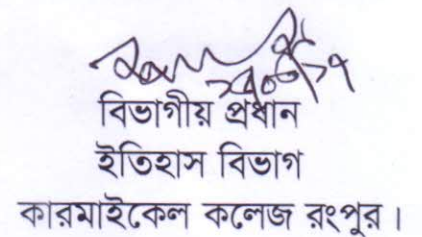 বিভাগীয় প্রধান
ইতিহাস বিভাগ
কারমাইকেল কলেজ রংপুর।